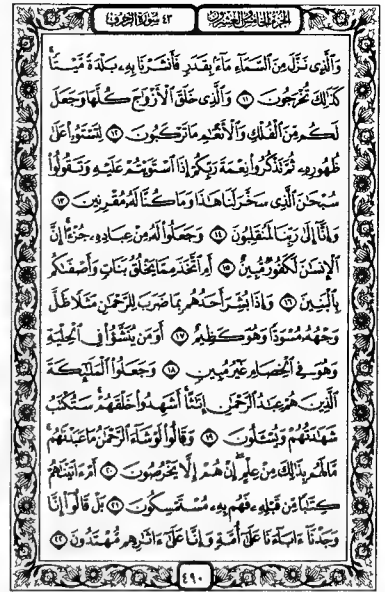 الجزء الخامس والعشرون
٤٣ سورة الزخرف
وَالَّذِي نَزَّلَ مِنَ السَّمَاءِ مَاءً بِقَدَرٍ فَأَنشَرْنَا بِهِ بَلْدَةً مَّيْتًا
كَذَٰلِكَ تُخْرَجُونَ ١١ وَالَّذِي خَلَقَ الْأَزْوَاجَ كُلَّهَا وَجَعَلَ
لَكُم مِّنَ الْفُلْكِ وَالْأَنْعَامِ مَا تَرْكَبُونَ ١٢ لِتَسْتَوُوا عَلَىٰ
ظُهُورِهِ ثُمَّ تَذْكُرُوا نِعْمَةَ رَبِّكُمْ إِذَا اسْتَوَيْتُمْ عَلَيْهِ وَتَقُولُوا
سُبْحَانَ الَّذِي سَخَّرَ لَنَا هَٰذَا وَمَا كُنَّا لَهُ مُقْرِنِينَ ١٣
وَإِنَّا إِلَىٰ رَبِّنَا لَمُنقَلِبُونَ ١٤ وَجَعَلُوا لَهُ مِنْ عِبَادِهِ جُزْءًا إِنَّ
الْإِنسَانَ لَكَفُورٌ مُّبِينٌ ١٥ أَمِ اتَّخَذَ مِمَّا يَخْلُقُ بَنَاتٍ وَأَصْفَاكُم
بِالْبَنِينَ ١٦ وَإِذَا بُشِّرَ أَحَدُهُم بِمَا ضَرَبَ لِلرَّحْمَٰنِ مَثَلًا ظَلَّ
وَجْهُهُ مُسْوَدًّا وَهُوَ كَظِيمٌ ١٧ أَوَمَن يُنَشَّأُ فِي الْحِلْيَةِ
وَهُوَ فِي الْخِصَامِ غَيْرُ مُبِينٍ ١٨ وَجَعَلُوا الْمَلَائِكَةَ
الَّذِينَ هُمْ عِبَادُ الرَّحْمَٰنِ إِنَاثًا أَشَهِدُوا خَلْقَهُمْ سَتُكْتَبُ
شَهَادَتُهُمْ وَيُسْأَلُونَ ١٩ وَقَالُوا لَوْ شَاءَ الرَّحْمَٰنُ مَا عَبَدْنَاهُم
مَّا لَهُم بِذَٰلِكَ مِنْ عِلْمٍ إِنْ هُمْ إِلَّا يَخْرُصُونَ ٢٠ أَمْ آتَيْنَاهُمْ
كِتَابًا مِّن قَبْلِهِ فَهُم بِهِ مُسْتَمْسِكُونَ ٢١ بَلْ قَالُوا إِنَّا
وَجَدْنَا آبَاءَنَا عَلَىٰ أُمَّةٍ وَإِنَّا عَلَىٰ آثَارِهِم مُّهْتَدُونَ ٢٢
٤٩٠